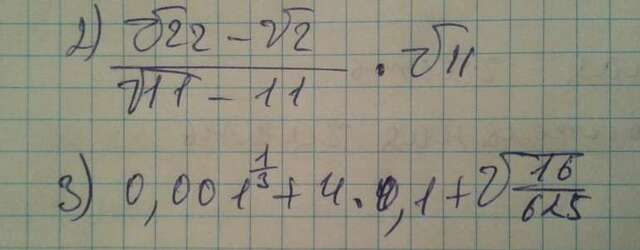 2) (√22 - √2)/(√11 - 11) · √11
3) 0,001^(1/3) + 4·0,1 + √(16/625)